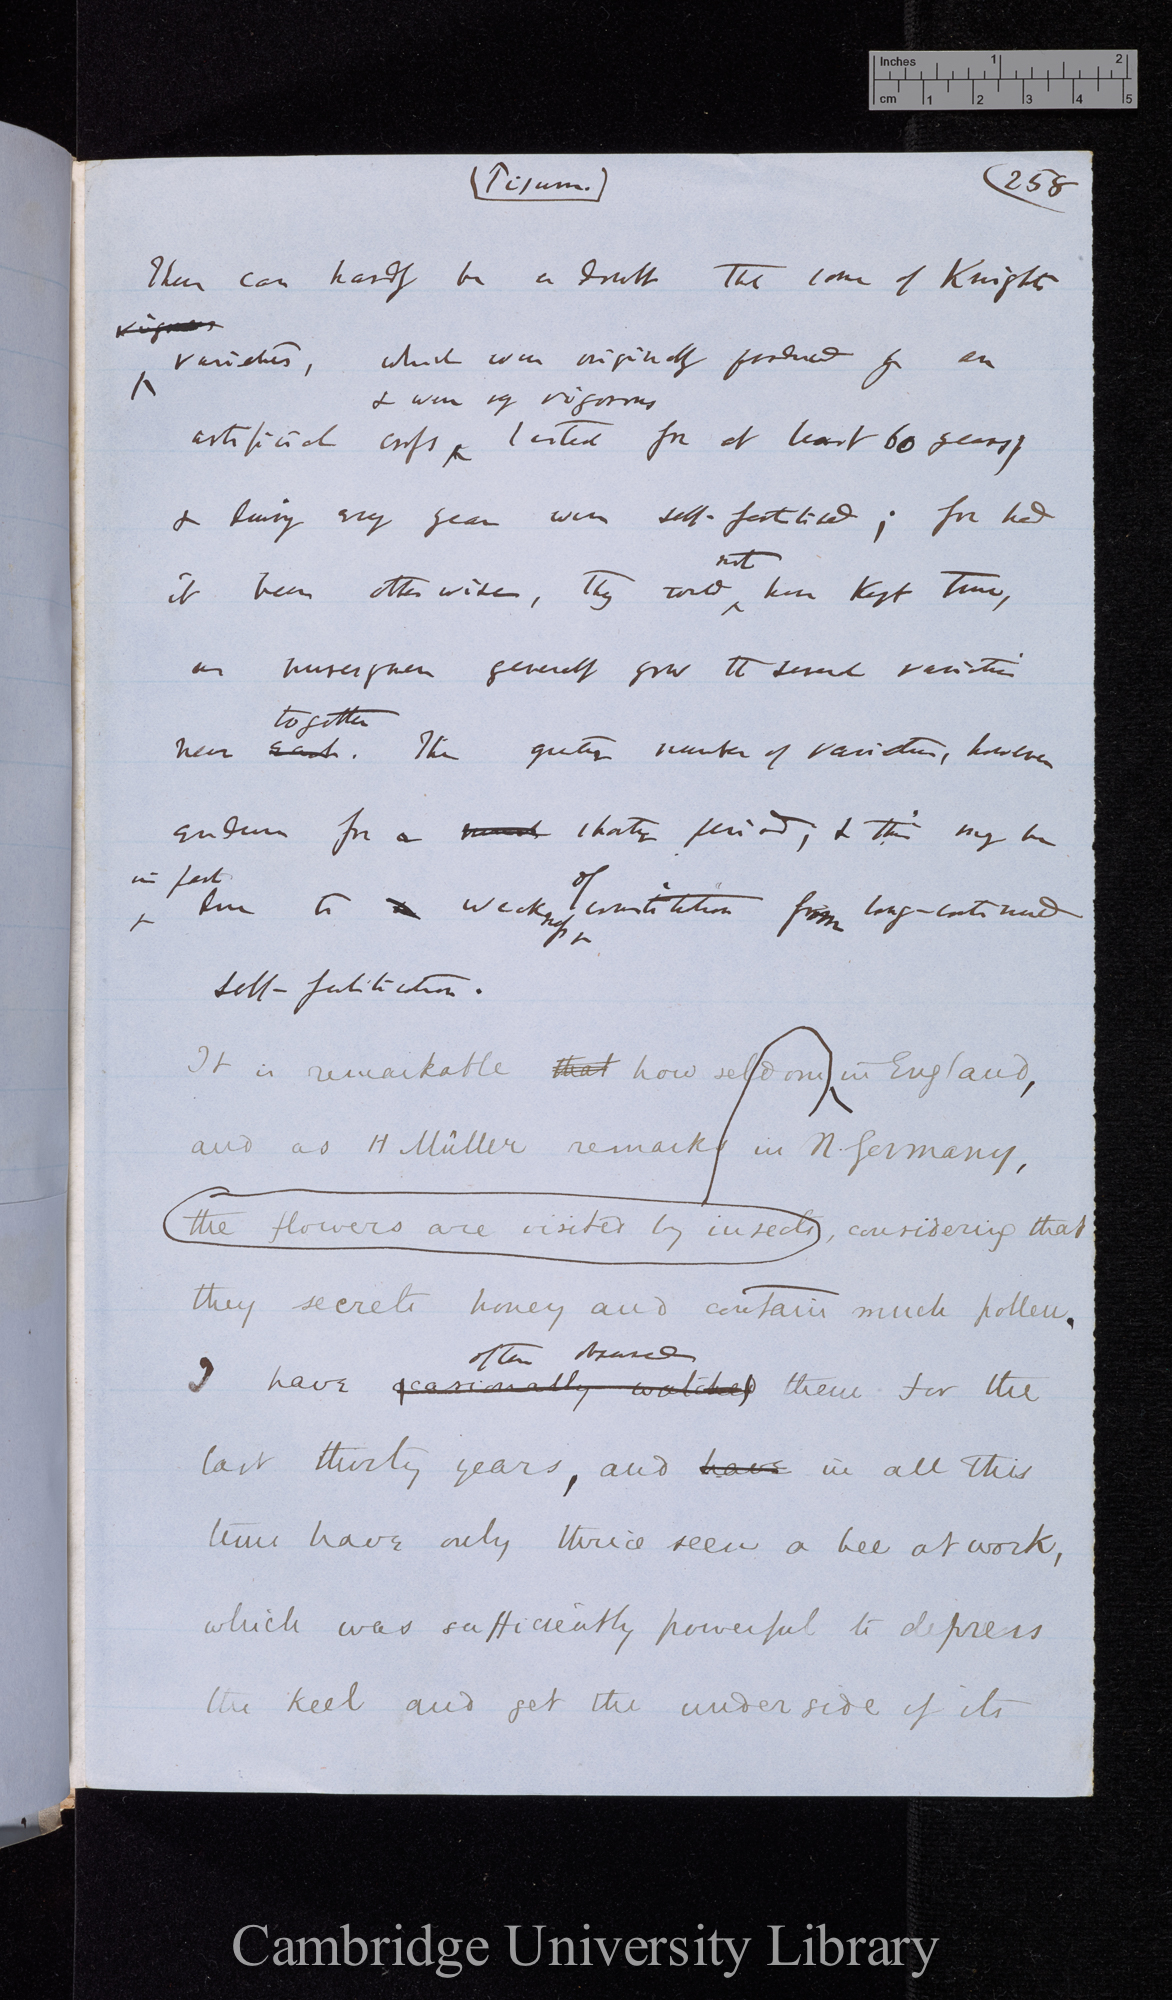 Inches 1 2
cm 1 2 3 4 5
(Pisum.)
(258
There can hardly be a doubt that some of Knights
vigorous
varieties, which were originally produced by an
& were very vigorous
artificial cross, lasted for at least 60 years;
& during every year were self-fertilised; for had
not
it been otherwise, they would have kept true,
as nurserymen generally grow the several varieties
together
near each. The greater number of varieties, however
endure for a much shorter period; & this may be
in part of
due to weakness constitution from long-continued
self-fertilisation.
It is remarkable that how seldom in England,
and as H. Müller remarks in N. Germany,
the flowers are visited by insects, considering that
they secrete honey and contain much pollen.
often observed
I have occasionally watched them for the
last thirty years, and have in all this
time have only thrice seen a bee at work,
which was sufficiently powerful to depress
the keel and get the underside of its
Cambridge University Library